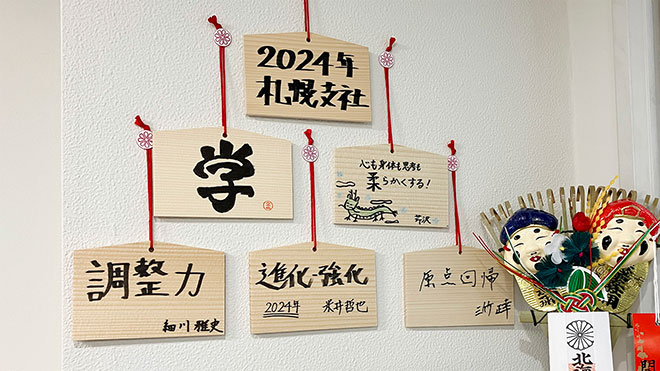 2024年
札幌支社
学
心も身体も思考も
柔らかくする！
芹沢
調整力
細川 雅史
進化・強化
2024年 米井哲也
原点回帰
北海
開